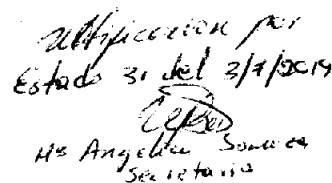 Notificación por
Estado 31 del 3/7/2019
Mª Angelica
Secretaria